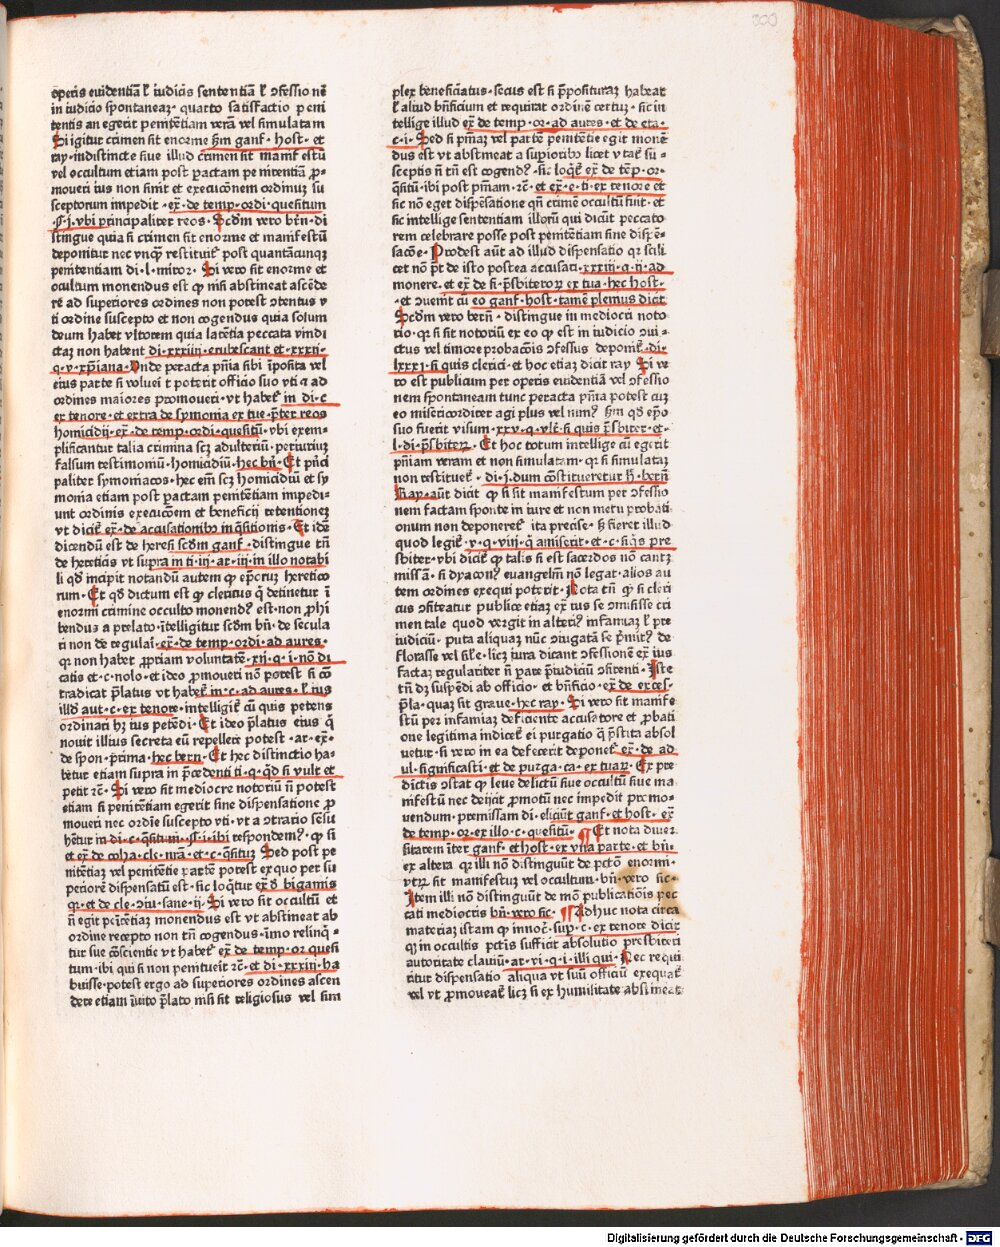 operis euidentiā ł iudiciis sententiā ł ꝯfessio nē
in iudicio spontaneaꝫ· quarto satisfactio peni
tentis an egerit penitētiam verā vel simulatam
Si igitur crimen sit enorme ẜm ganf· host· et
ray· indistincte siue illud crimen sit manifestū
vel occultum etiam post ꝑactam penitentiā ꝓ⸗
moueri ius non sinit et execucōnem ordinuꝫ su
sceptorum impedit· ex̄· de temp· ordi· quesitum
§·j· vbi principaliter reos· Scdm vero bern̄· di
stingue quia si crimen sit enorme et manifestū
deponitur nec vnqꝫ restituit᷑ post quantācunqꝫ
penitentiam di·l· miror· Si vero sit enorme et
ocultum monendus est ꝙ nō abstineat ascēde
re ad superiores ordines non potest ꝯtentus v
ti ordine suscepto et non cogendus quia solum
deum habet vltorem quia latētia peccata vindi
ctaꝫ non habent di·xxxiii· erubescant et·xxxij·
q·v· xp̄iana· Unde peracta pn̄ia sibi īposita vel
eius parte si voluerit poterit officio suo vti ⁊ ad
ordines maiores promoueri· vt habet᷑ in di·c
ex tenore· et extra de symonia ex tue· p̄ter reos
homicidij· ex̄· de temp· ordi· quesitū· vbi exem⸗
plificantur talia crimina scꝫ adulteriū· periuriuꝫ
falsum testimoniū· homicidiū· hec bn̄· Et p̄nci
paliter symoniacos· hec em̄ scꝫ homicidiū et sy
monia etiam post ꝑactam penitētiam impedi⸗
unt ordinis execucōem et beneficij retentioneꝫ
vt dicit᷑ ex̄· de accusationibꝫ inq̄sitionis· Et idē
dicendū est de heresi scdm ganf· distingue tn̄
de hereticis vt supra in ti·iii·ar·iii·in illo notabi
li qd̄ incipit notandū autem ꝙ ep̄coruꝫ heretico
rum· Et qd̄ dictum est ꝙ clericus q̄ detinetur ī
enormi crimine occulto monendꝰ est· non ꝓhi
bendus a prelato· ītelligitur scdm bn̄· de secula
ri non de regulari· ex̄· de temp· ordi· ad aures·
qꝛ non habet ꝓpriam voluntatē· xii·q·i·nō di
catis et·c·nolo· et ideo ꝓmoueri nō potest si cō
tradicat p̄latus vt habet᷑ in·c·ad aures· ł ius
illd̄ aut·c·ex tenore· intelligit᷑ cū quis petens
ordinari hꝫ ius petēdi· Et ideo p̄latus eius q̄
nouit illius secreta eū repellere potest· ar·ex̄·
de spon· prima· hec bern· Et hec distinctio ha⸗
betur etiam supra in p̄cedenti ti·q·qd̄ si vult et
petit ⁊c̄· Si vero sit mediocre notoriū n̄ potest
etiam si penitētiam egerit sine dispensatione ꝓ
moueri nec ordīe suscepto vti· vt a ꝯtrario sēsu
hētur in di·c·q̄situm·§·j· ibi respondemꝰ· ꝙ si
et ex̄ de coha·cle·⁊ et·c·q̄situꝫ Sed post pe
nitētiaꝫ vel penitētie ꝑartē potest ex quo per su
periorē dispensatū est· sic loq̄tur ex̄ d̄ bigamis
qꝛ· et de cle· ꝯiu· sane·ij· Si vero sit occultū et
n̄ egit penitētiaꝫ monendus est vt abstineat ab
ordine recepto non tn̄ cogendus· īmo relinq̄⸗
tur sue cōscientie vt habet᷑ ex̄ de temp· or· quesi
tum· ibi qui si non penituerit ⁊c̄· et di·xxxiij· ha
buisse· potest ergo ad superiores ordines ascen
dere etiam īuito p̄lato nisi sit religiosus vel sim
plex beneficiatus· secus est si p̄positurаꝫ habeat
ł aliud bn̄ficium et requirat ordinē certuꝫ· sic in
tellige illud ex̄ de temp· or· ad aures· et de eta·
c·i· Sed si pn̄iaꝫ vel partē penitētie egit monē
dus est vt abstineat a supioribꝰ licet vtat᷑ su⸗
sceptis n̄ tn̄ est cogendꝰ· sic loqt᷑ ex̄ de tēp· or·
q̄situ· ibi post pn̄iam· ⁊c̄· et ex̄· e· ti· ex tenore et
sic nō eget dispēsatione qn̄ crimē occultū fuit· et
sic intellige sententiam illorū qui dicūt peccato
rem celebrare posse post penitētiam sine dispē⸗
sacōe· Prodest aūt ad illud dispensatio qꝛ scili
cet nō pt̄ de isto postea accusari· xxxiiij·q·ij· ad
monere· et ex̄ de fi· p̄sbiteroꝝ ex tua· hec host·
et ꝯuenit cū eo ganf· host· tamē plenius dicit
Scdm vero bern̄· distingue in mediocri noto
rio· qꝛ si sit notoriū ex eo ꝙ est in iudicio ꝯui⸗
ctus vel timore probacōis ꝯfessus deponit᷑· di·
lxxxj· si quis clerici· et hoc etiaꝫ dicit ray Si ve
ro est publicum per operis euidentiā vel ꝯfessio
nem spontaneam tunc peracta pn̄ia potest cuꝫ
eo misericorditer agi plus vel minꝰ ẜm qd̄ ep̄o
suo fuerit visum· xxv·q·vlt̄· si quis p̄sbiter· et·
l·di· p̄sbiteꝝ· Et hoc totum intellige cū egerit
pn̄iam veram et non simulatam· qꝛ si simulataꝫ
non restituet᷑· di·j· dum cōstitueretur ẜ· bern̄
Ray· aūt dicit ꝙ si sit manifestum per ꝯfessio
nem factam sponte in iure et non metu probati
onum non deponeret᷑ ita precise· ẜ fieret illud
quod legit᷑· v·q·viij· q̄ amiserit· et·c· si q̄s pre
sbiter· vbi dicit᷑ ꝙ talis si est sacerdos nō cantꝫ
missā· si dyaconꝰ euangeliū nō legat· alios au
tem ordines exequi poterit· Nota tn̄ ꝙ si cleri
cus ꝯfiteatur publice etiaꝫ ex̄ ius se ꝯmisisse cri
men tale quod vergit in alteriꝰ infamiaꝫ ł pre
iudiciū· puta aliquaꝫ nūc ꝯiugatā se p̄muitꝰ de
florasse vel sil̄e· licꝫ iura dicant ꝯfessionē ex̄ ius
factaꝫ regulariter n̄ pare p̄iudiciū ꝯfitenti· Iste
tn̄ dꝫ suspēdi ab officio· et bn̄ficio· ex̄ de exces·
p̄la· quaꝫ sit graue· hec ray· Si vero sit manife
stū per infamiaꝫ deficiente accusatore et ꝓbati
one legitima indicet᷑ ei purgatio q̄ p̄stita absol
uetur· si vero in ea defecerit deponet᷑ ex̄· de ad
ul· significasti· et de purga·ca· ex tuaꝝ· Ex pre
dictis ꝯstat ꝙ leue delictū siue occultū siue ma
nifestū nec deijcit ꝓmotū nec impedit promo⸗
uendum· premissam di· eliciūt ganf· et host· ex̄
de temp· or· ex illo·c· quesitū· ¶ Et nota diuer
sitatem īter ganf· et host· ex vna parte· et bn̄·
ex altera qꝛ illi nō distinguūt de pctō enormi·
vtꝝ sit manifestuꝫ vel occultum· bn̄· vero sic·
Item illi nō distinguūt de mō publicationis pec
cati mediocris bn̄· vero sic· ¶ Adhuc nota circa
materiaꝫ istam ꝙ innoc̄· sup·c· ex tenore dicit
qꝫ in occultis pctīs sufficit absolutio presbiteri
autoritate clauiū· ar·vi·q·i· illi qui· Nec requi
ritur dispensatio aliqua vt suū officiū exequat᷑
vel vt ꝓmoueat᷑ licꝫ si ex humilitate abstineat
Digitalisierung gefördert durch die Deutsche Forschungsgemeinschaft - DFG